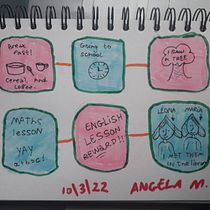 Break
fast!
cereal and
coffee.
Going to
school
I SAW
A TREE
MATHS
LESSON
YAY
ENGLISH
LESSON
REWARD!!
LEONA MARIA
I MET THEM
10/3/22 ANGELA M.